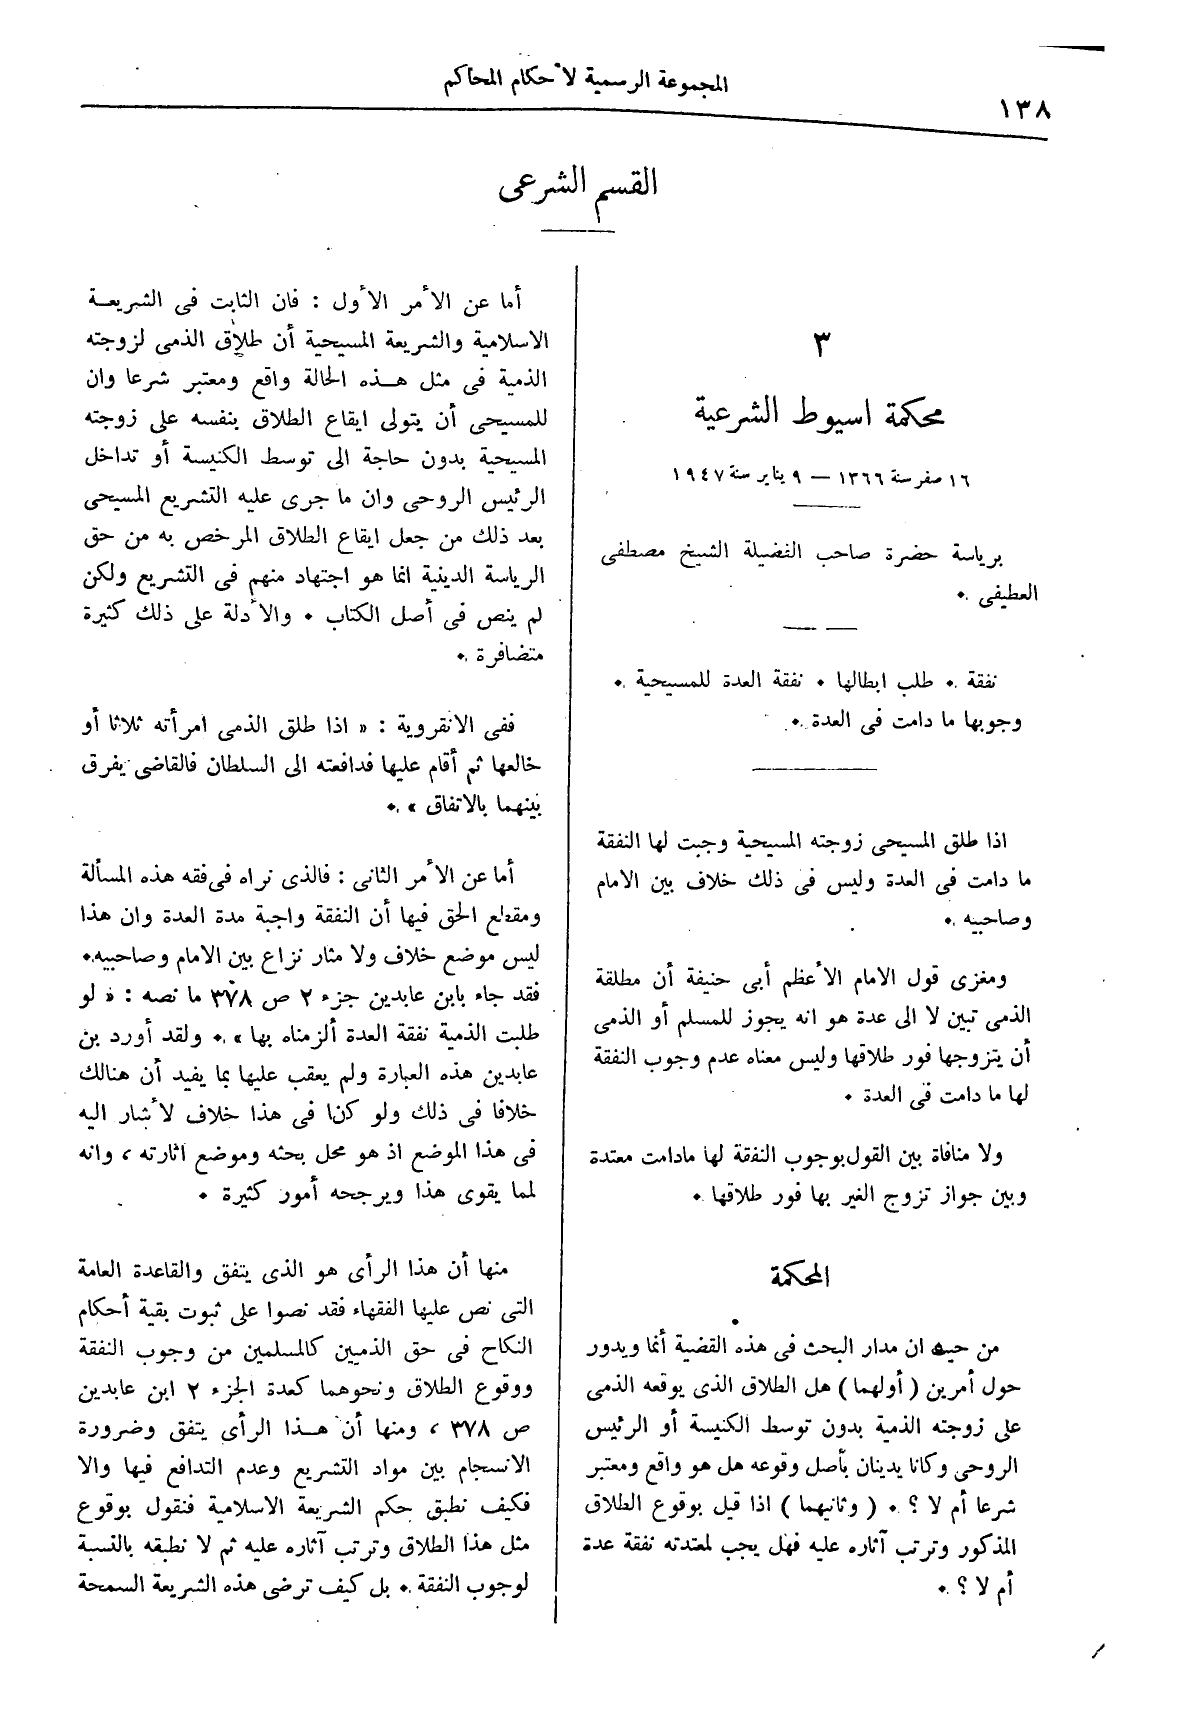 المجموعة الرسمية لأحكام المحاكم
١٣٨
القسم الشرعى
٣
محكمة اسيوط الشرعية
١٦ صفر سنة ١٣٦٦ — ٩ يناير سنة ١٩٤٧
برياسة حضرة صاحب الفضيلة الشيخ مصطفى
العطيفى .
نفقة . طلب ابطالها . نفقة العدة للمسيحية .
وجوبها ما دامت فى العدة .
اذا طلق المسيحى زوجته المسيحية وجبت لها النفقة
ما دامت فى العدة وليس فى ذلك خلاف بين الامام
وصاحبيه .
ومغزى قول الامام الأعظم أبى حنيفة أن مطلقة
الذمى تبين لا الى عدة هو انه يجوز للمسلم أو الذمى
أن يتزوجها فور طلاقها وليس معناه عدم وجوب النفقة
لها ما دامت فى العدة .
ولا منافاة بين القول بوجوب النفقة لها مادامت معتدة
وبين جواز تزوج الغير بها فور طلاقها .
المحكمة
من حيث ان مدار البحث فى هذه القضية أنما ويدور
حول أمرين ( أولهما ) هل الطلاق الذى يوقعه الذمى
على زوجته الذمية بدون توسط الكنيسة أو الرئيس
الروحى وكانا يدينان بأصل وقوعه هل هو واقع ومعتبر
شرعا أم لا ؟ . ( وثانيهما ) اذا قيل بوقوع الطلاق
المذكور وترتب آثاره عليه فهل يجب لمعتدته نفقة عدة
أم لا ؟ .
أما عن الأمر الأول : فان الثابت فى الشريعة
الاسلامية والشريعة المسيحية أن طلاق الذمى لزوجته
الذمية فى مثل هذه الحالة واقع ومعتبر شرعا وان
للمسيحى أن يتولى ايقاع الطلاق بنفسه على زوجته
المسيحية بدون حاجة الى توسط الكنيسة أو تداخل
الرئيس الروحى وان ما جرى عليه التشريع المسيحى
بعد ذلك من جعل ايقاع الطلاق المرخص به من حق
الرياسة الدينية انما هو اجتهاد منهم فى التشريع ولكن
لم ينص فى أصل الكتاب . والأدلة على ذلك كثيرة
متضافرة .
ففى الانقروية : « اذا طلق الذمى امرأته ثلاثا أو
خالعها ثم أقام عليها فدافعته الى السلطان فالقاضى يفرق
بينهما بالاتفاق » .
أما عن الأمر الثانى : فالذى نراه فى فقه هذه المسألة
ومقطع الحق فيها أن النفقة واجبة مدة العدة وان هذا
ليس موضع خلاف ولا مثار نزاع بين الامام وصاحبيه .
فقد جاء بابن عابدين جزء ٢ ص ٣٧٨ ما نصه : « لو
طلبت الذمية نفقة العدة ألزمناه بها » . ولقد أورد بن
عابدين هذه العبارة ولم يعقب عليها بما يفيد أن هنالك
خلافا فى ذلك ولو كنا فى هذا خلاف لأشار اليه
فى هذا الموضع اذ هو محل بحثه وموضع اثارته ، وانه
لما يقوى هذا ويرجحه أمور كثيرة .
منها أن هذا الرأى هو الذى يتفق والقاعدة العامة
التى نص عليها الفقهاء فقد نصوا على ثبوت بقية أحكام
النكاح فى حق الذميين كالمسلمين من وجوب النفقة
ووقوع الطلاق ونحوهما كعدة الجزء ٢ ابن عابدين
ص ٣٧٨ ، ومنها أن هذا الرأى يتفق وضرورة
الانسجام بين مواد التشريع وعدم التدافع فيها والا
فكيف نطبق حكم الشريعة الاسلامية فنقول بوقوع
مثل هذا الطلاق وترتب آثاره عليه ثم لا نطبقه بالنسبة
لوجوب النفقة . بل كيف ترضى هذه الشريعة السمحة